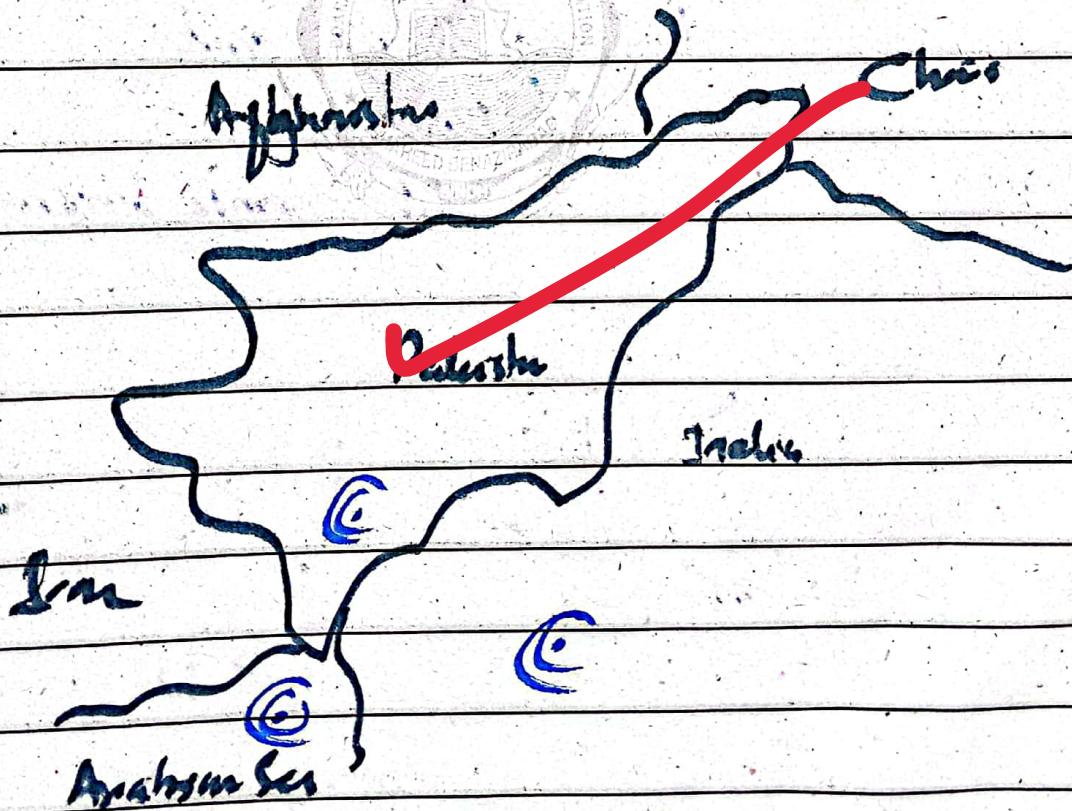 Afghanistan
China
Pakistan
India
Iran
Arabian Sea